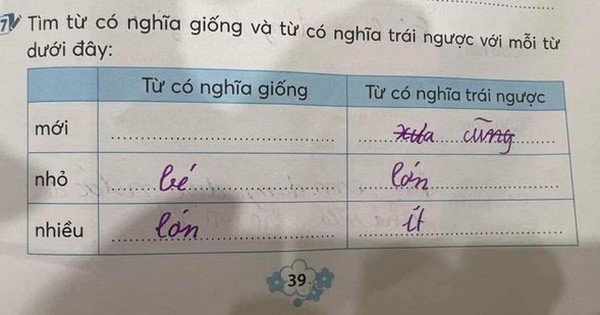 7 Tìm từ có nghĩa giống và từ có nghĩa trái ngược với mỗi từ
dưới đây:
Từ có nghĩa giống Từ có nghĩa trái ngược
mới xưa cũng
nhỏ bé lớn
nhiều lớn ít
39